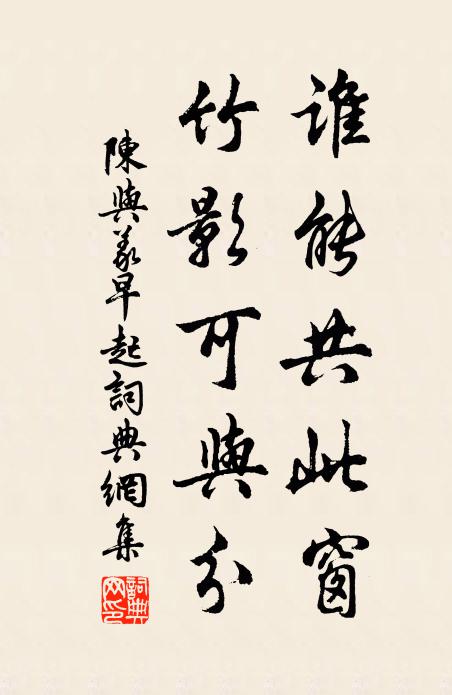 誰能共此窗
竹影可與分
陳與義早起詞典網集
詞典
网印